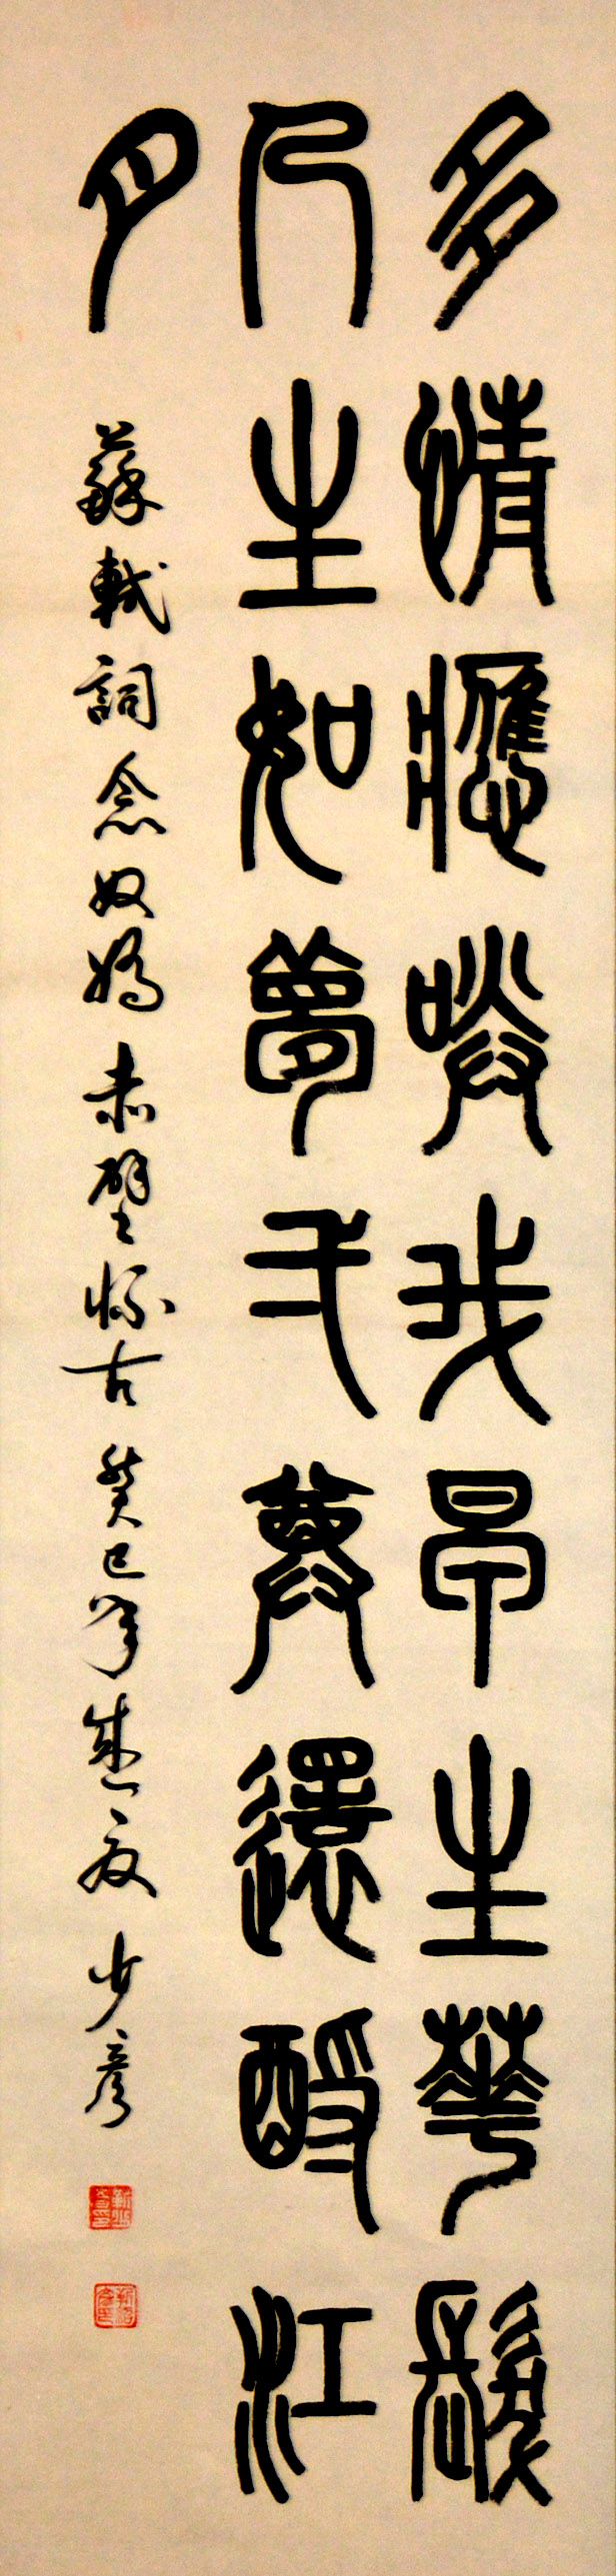 多情應咲我早生華髮
人生如夢弌尊還酹江
月
蘇軾詞念奴嬌赤壁怀古 癸巳年盛夏 少彥